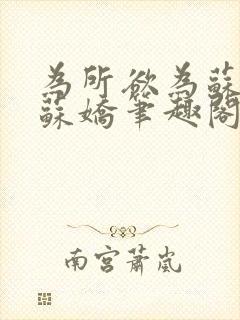 為所欲為蘇
蘇嬌筆趣閣
南宮蕭嵐